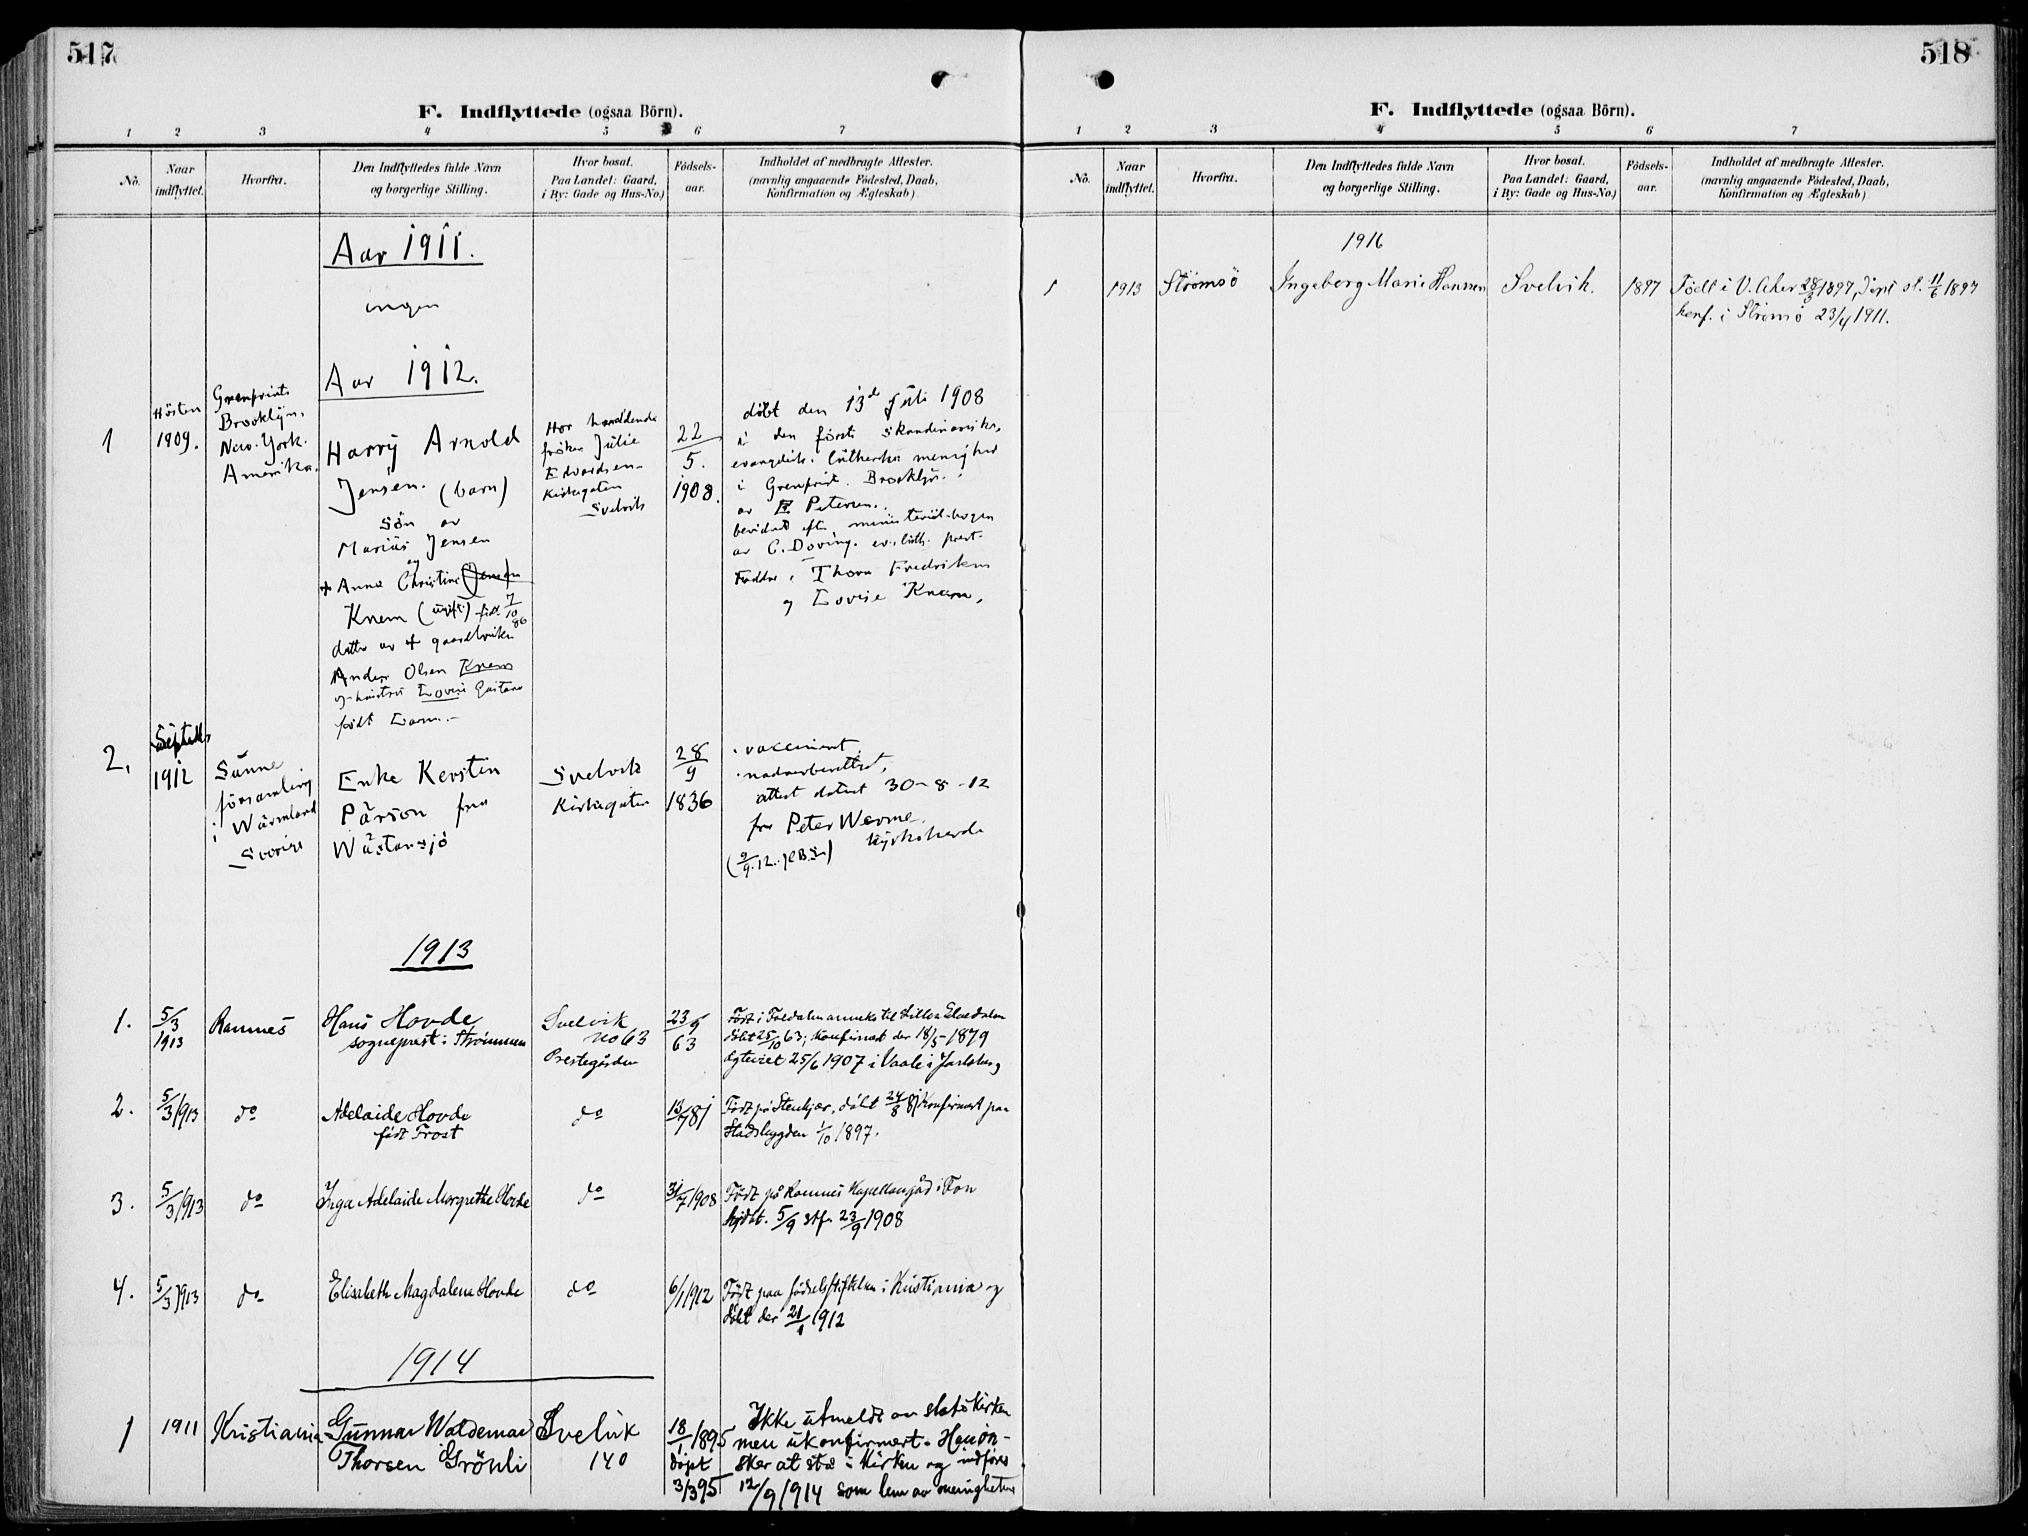 517
F. Indflyttede (ogsaa Börn).
1 2 3 4 5 6 7
No. Naar indflyttet. Hvorfra. Den Indflyttedes fulde Navn og borgerlige Stilling. Hvor bosat. Paa Landet: Gaard, i By: Gade og Hus-No.) Fødsels-aar. Indholdet af medbragte Attester. (navnlig angaaende Födested, Daab, Konfirmation og Ægteskab)
Aar 1911.
ingen
Aar 1912.
1
Hösten
1909.
Grenpoint
Brooklyn.
New-York.
Amerika.
Harry Arnold
Jensen. (barn)
Sön av
Marius Jensen
og
+ Anna Christine Jensen
Knem (ugift) født 7/10 86
datter av + gaardbruker
Anders Olsen Knem
og hustru Lovise Gustava
født Larm.
Hos
frøken Julie
Edvardsen
Kirkegaten
Svelvik
22/5.
1908.
døbt den 13de Juli 1908
i den første skandinaviske
evangelisk. lutherske menighed
i Grenpoint. Brooklyn.
av E. Petersen.
bevidnet efter ministerial-bogen
av C. Doving. ev. luth. prest.
Faddre. Thora Fredriksen
og Lovise Knem.
2.
Septbr
1912
Sunne
församling
i Wärmland
Sverige
Enke Kerstin
Pärson fra
Wästansjö
Svelvik
Kirkegaten
28/9
1836
vaccinert
nadverberettiget,
attest datert 30-8-12
fra Peter Werme.
kyrkoherde
(9/9.12.)
1913
1. 5/3 1913 Ramnes
Hans Hovde
sogneprest i Strømmen
Svelvik
No 63
Prestegården
23/9
63
Født i Foldalen anneks til Lille Elvedalen
døbt 25/10 63; konfirmert den 18/5-1879
Ægteviet 25/6 1907 i Vaale i Jarlsberg
2. 5/3 1913 do
Adelaide Hovde
født Frost
do
13/7 81
Født på Stenkjær, døbt 24/8 81 Konfirmert paa
Stadsbygden 1/10 1897.
3. 5/3 1913 do Inga Adelaide Margrethe Hovde do 31/7 1908 Født på Ramnes Kapellangård i Fon
hjdbt. 5/9 stf. 23/9 1908
4. 5/3 1913 do Elisabeth Magdalena Hovde do 6/1 1912 Født paa fødselsstiftelsen i Kristiania og
døbt der 21/1 1912
1914
1 1911 Kristiania
Gunnar Waldemar
Thorsen Grönli
Svelvik
140
18/1 1895
døpt
3/3 95
Ikke utmeldt av statskirken
men ukonfirmert. Han øn-
sker at stå i kirken og indføres
12/9 1914 som lem av menigheten
518
F. Indflyttede (ogsaa Börn).
1 2 3 4 5 6 7
No. Naar indflyttet. Hvorfra. Den Indflyttedes fulde Navn og borgerlige Stilling. Hvor bosat. Paa Landet: Gaard, i By: Gade og Hus-No.) Fødsels-aar. Indholdet af medbragte Attester. (navnlig angaaende Födested, Daab, Konfirmation og Ægteskab)
1916
1 1913 Strømsö Ingeborg Marie Hansen Svelvik. 1897 Født i V. Aker 28/3 1897, døpt st. 11/6 1897
konf. i Strømsö 23/4 1911.